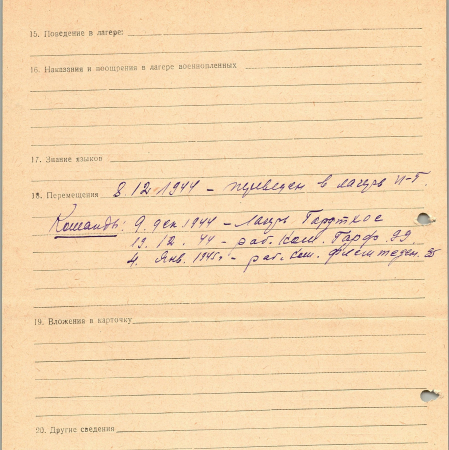 15. Поведение в лагере:
16. Наказания и поощрения в лагере военнопленных
17. Знание языков
18. Перемещения 8.12.1944 – переведен в лагерь
Команды: 9 дек. 1944 – Лагерь
12. 44 – раб. ком. 99
4. Янв. 1945г. – раб. ком.
19. Вложения в карточку
20. Другие сведения